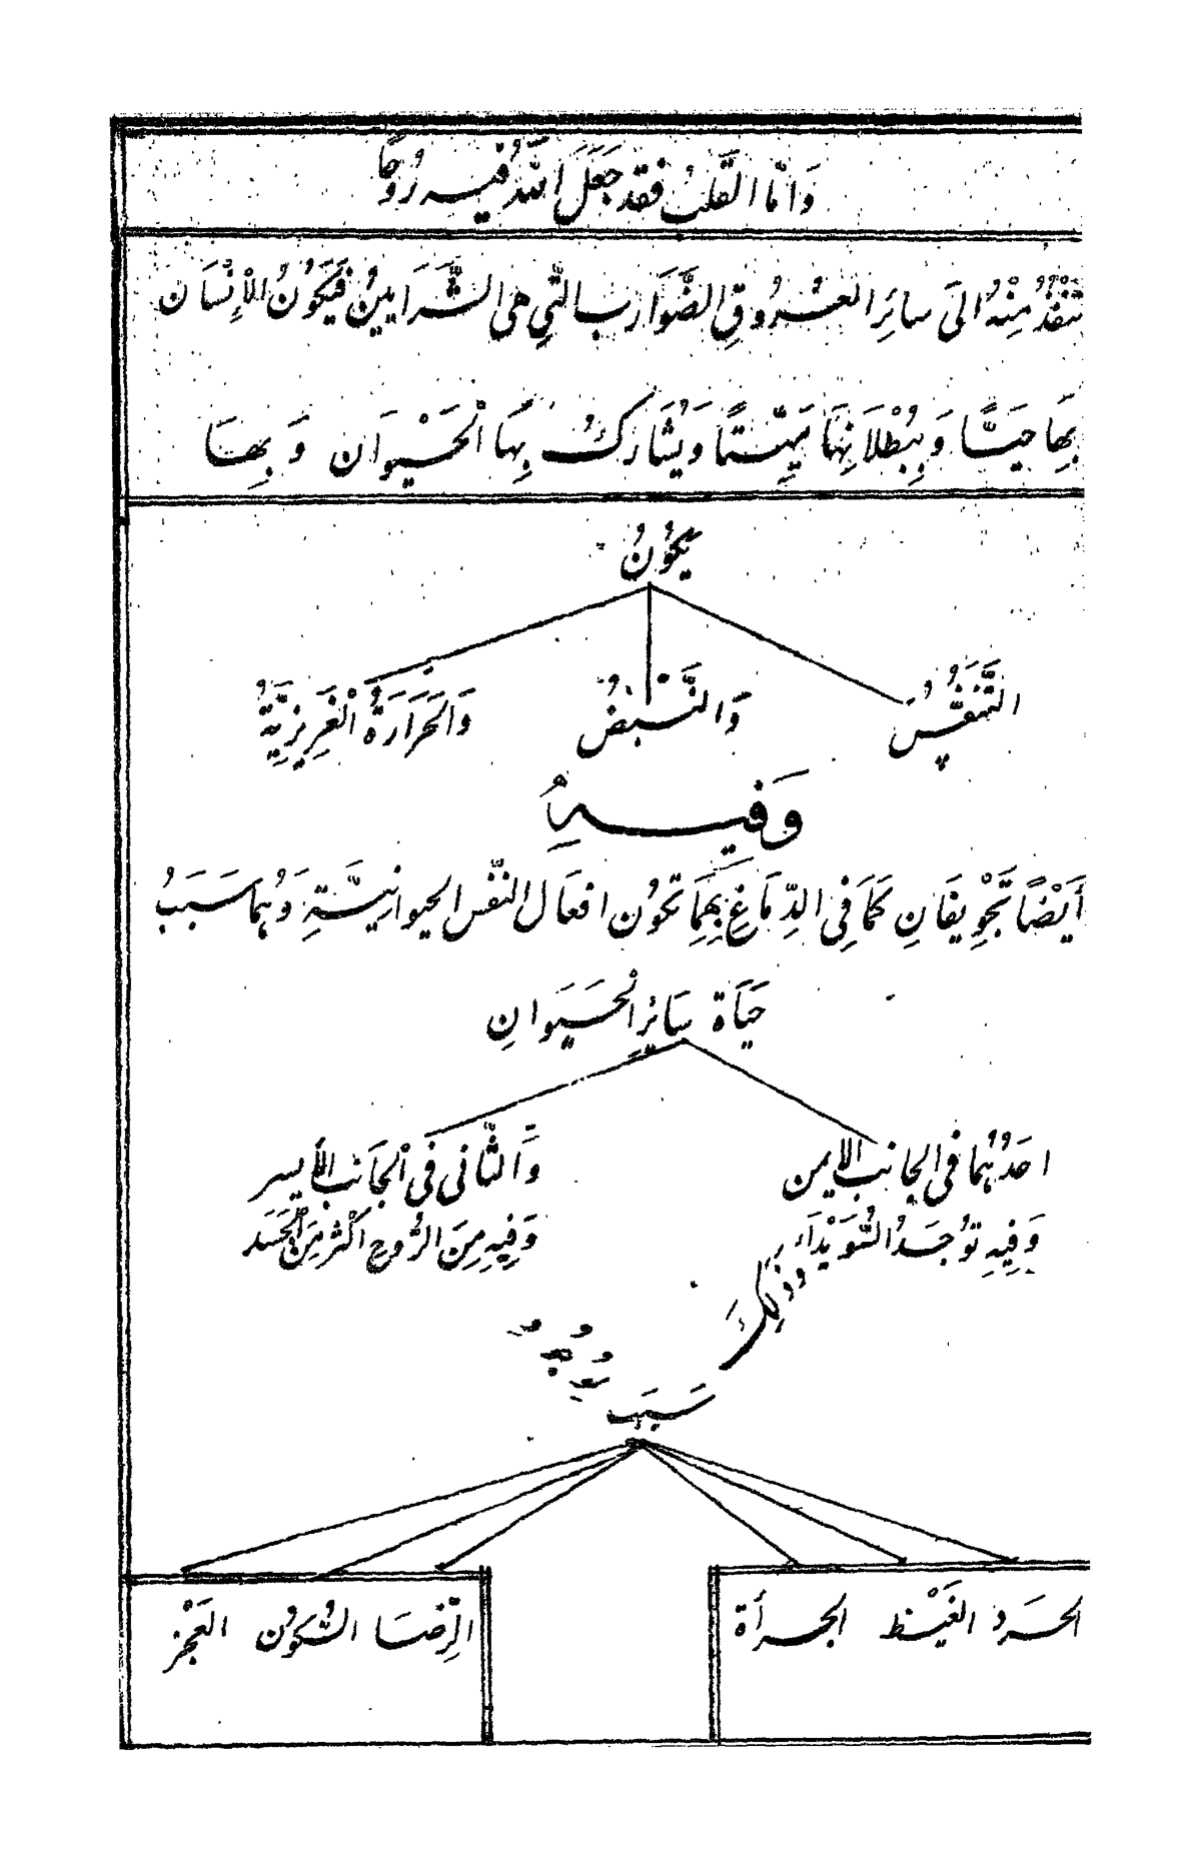 وَامَّا القَلبُ فقد جَعَلَ اللهُ فيه رُوحًا
تنفُذُ مِنْهُ الىَ سائِرِ العُرُوقِ الضَّوَارب التَّيِ هى الشَّرَايينُ فَيَكُونُ الْإِنْسَان
بِهَا حَيًّا وَبِبُطْلَانِهَا مَيِّتًا وَيُشَارِكُ بِهَا الْحَيْوَان وَبِهَا
يَكُونُ
التَّنَفُّسُ
وَالنَّبْضُ
وَالحَرَارَةُ الْغَرِيزِيَّةُ
وَفيهِ
أَيْضًا تَجْوِيفَانِ كَمَا فِى الدِّمَاغِ بِهِمَا تَكوُن افعَال النّفس الحيوانِيَّةِ وَهُمَا سَبَبُ
حَيَاة سَائِرِ الْحَيَوانِ
احَدُهُمَا فى الجانب الايمن
وَالثَّانى فى الْجَانب الأيسر
وَفِيهِ تُوجَدُ السُّوَيْدَاء
وَفِيهِ مِنَ الرُّوحِ اكْثَر مِنَ الْجَسَد
وذلِكَ
سَبَب
الحرد الغَيْظ الجرأة
الرِّضَا السُّكوُن العَجْز